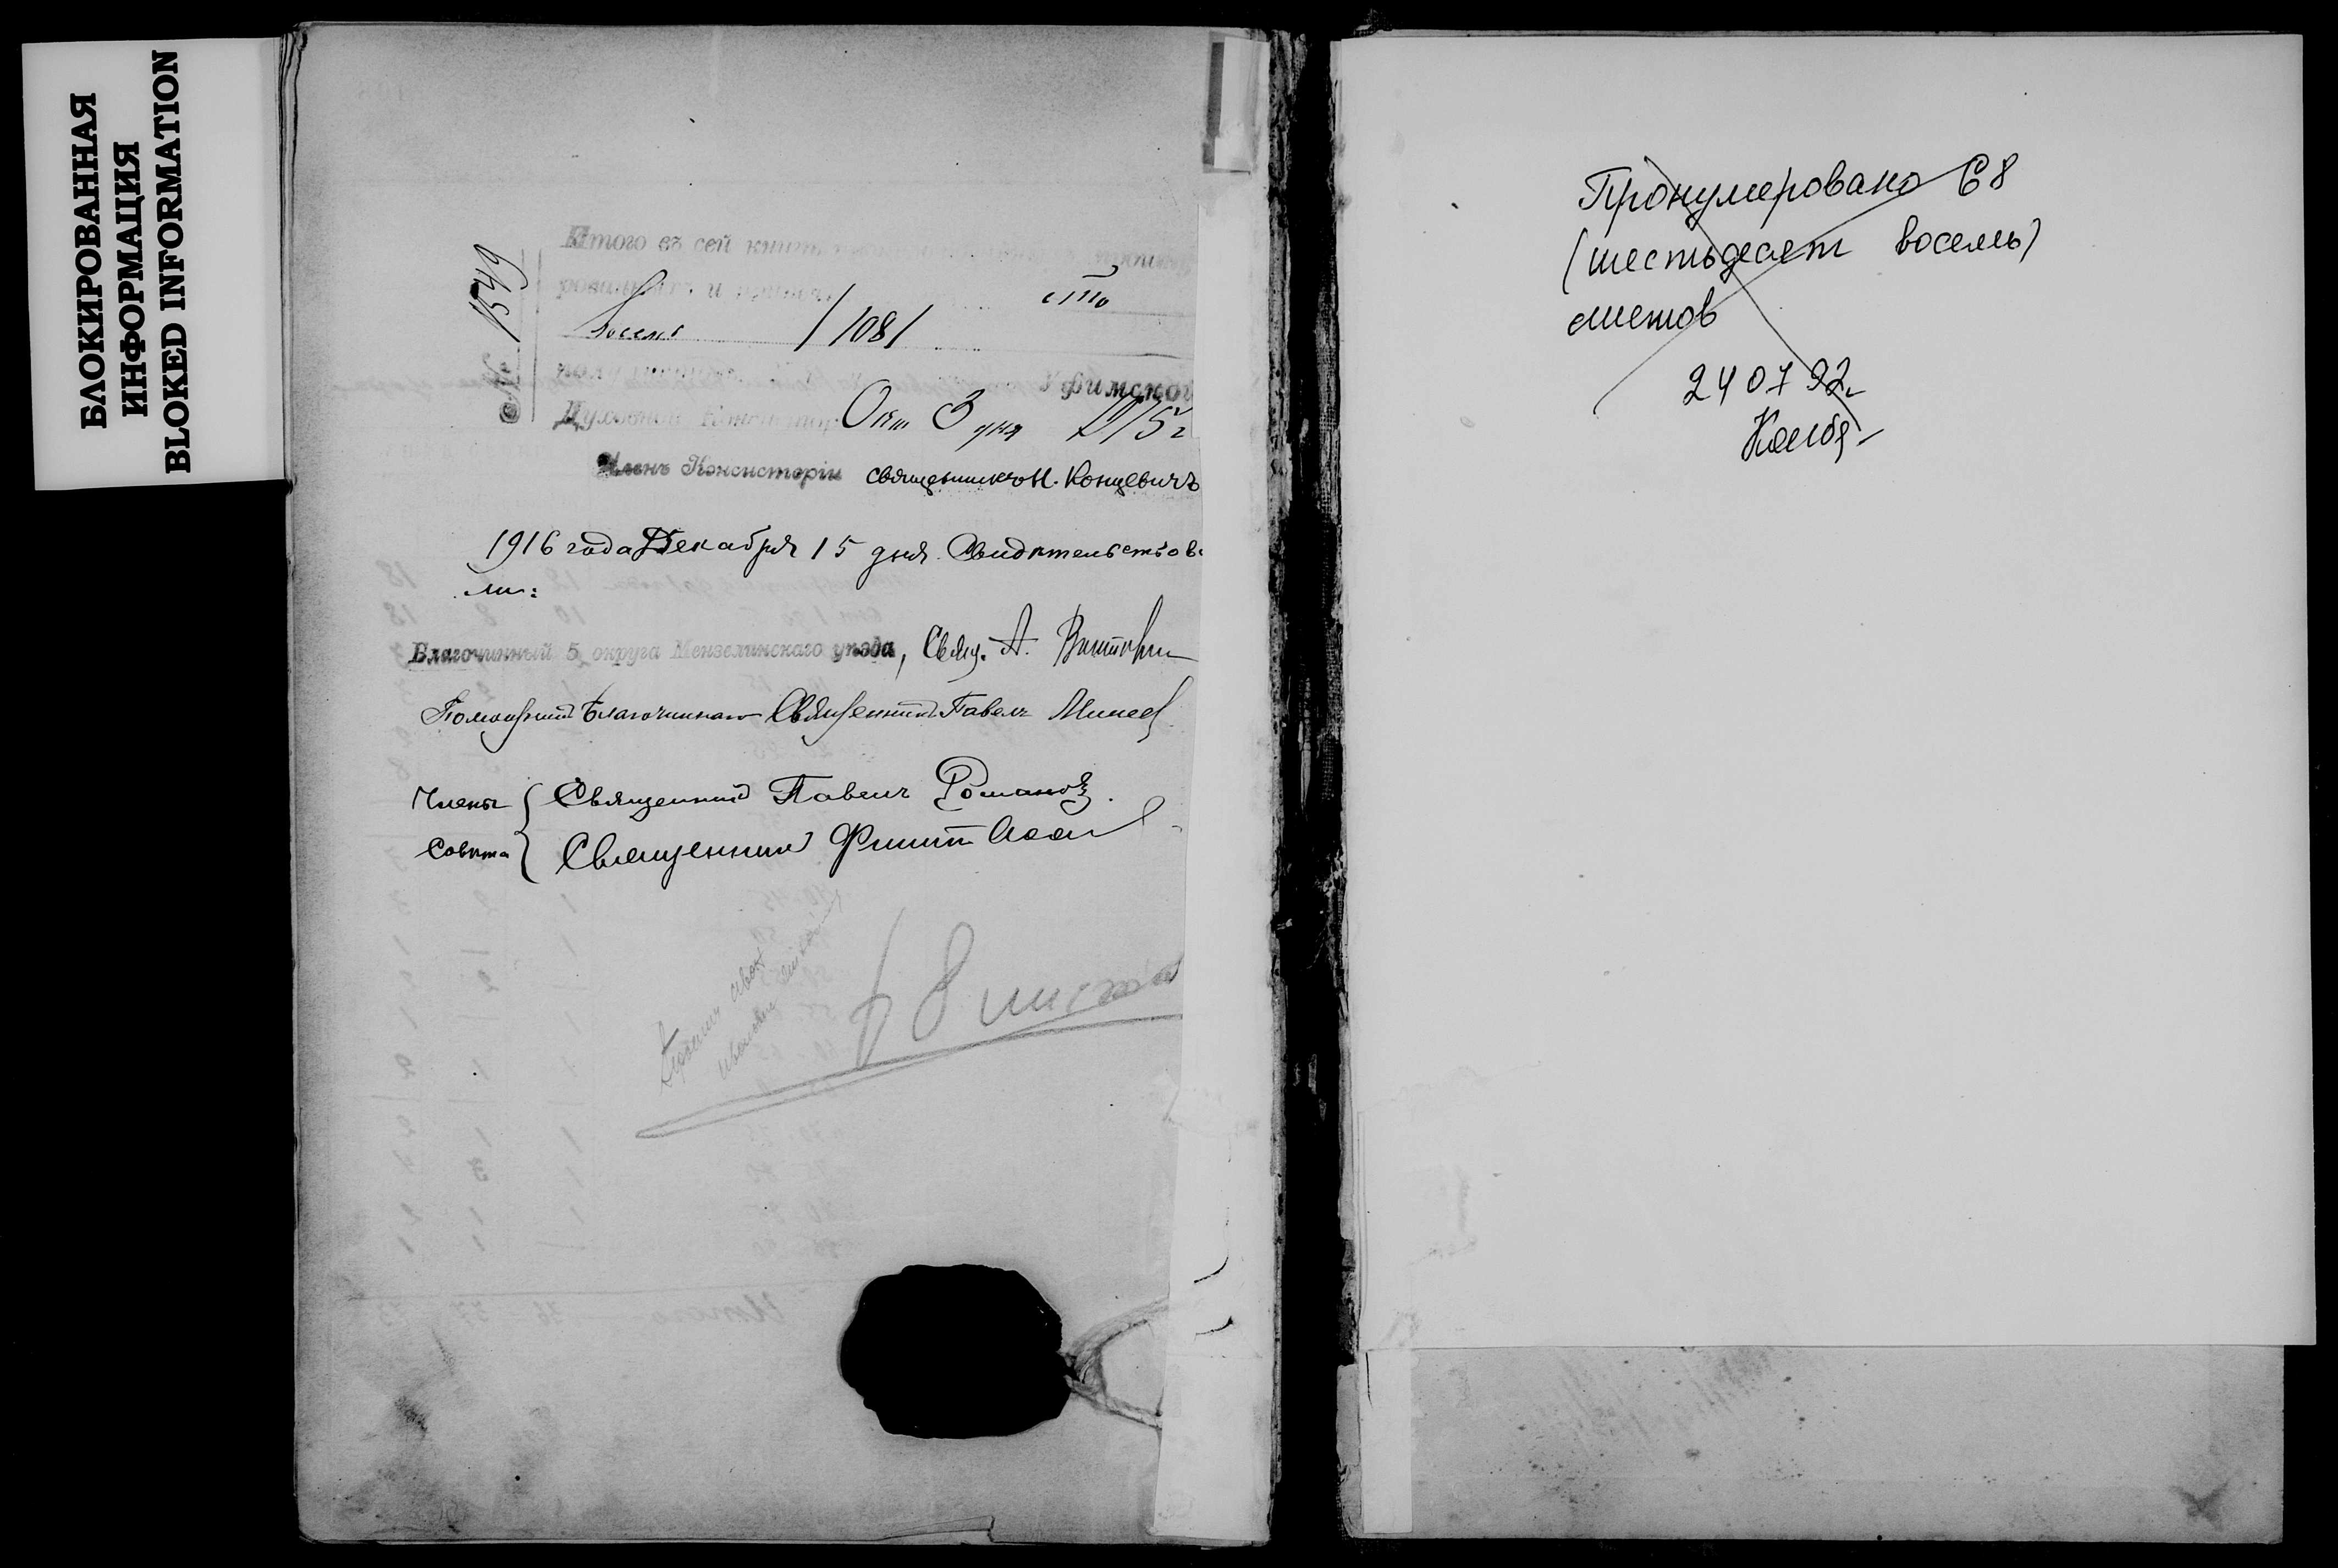 БЛОКИРОВАННАЯ
ИНФОРМАЦИЯ
BLOKED INFORMATION
№ 1549
Итого въ сей книг
сто
восемь /108/
Уфимской
Духовной Консистор Окт 3 дня 1915 г
Членъ Консисторіи священникъ Н. Концевичъ
1916 года Декабря 15 дня Свидѣтельствова
ли:
Благочинный 5 округа Мензелинскаго уѣзда, Свящ. А.
Помощникъ Благочиннаго Священникъ Павелъ
Члены { Священникъ Павелъ Романовъ
Совѣта { Священникъ
68 листов
Пронумеровано 68
(шестьдесят восемь)
листов
24 07 92 г.